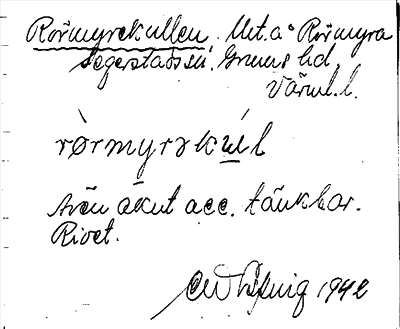 Rörmyrekullen. Ut. a° Rörmyra
Segerstads sn. Grums hd.
Värml. l.
rörmyrəkúl
Även akut acc. tänkbar.
Rivet.
1942